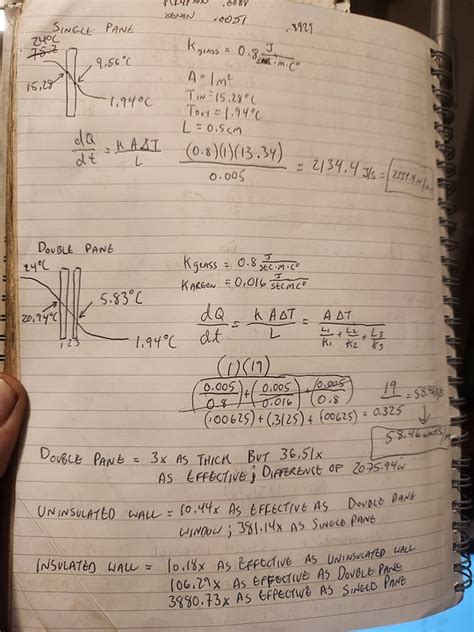 KRYPTON .0088
XENON .0051
.3929
SINGLE PANE
24°C
9.56°C
15.28
1.94°C
K GLASS = 0.8 J/SEC·M·C°
A = 1m²
TIN = 15.28°C
TOUT = 1.94°C
L = 0.5cm
dQ/dt = KAΔT/L (0.8)(1)(13.34)/0.005 = 2134.4 J/s = 2134.4 W/
DOUBLE PANE
24°C
5.83°C
20.94°C
1.94°C
1 2 3
K GLASS = 0.8 J/SEC·M·C°
K ARGON = 0.016 J/SEC M C°
dQ/dt = KAΔT/L = AΔT/(L1/K1 + L2/K2 + L3/K3)
(1)(19)
(0.005/0.8)+(0.005/0.016)+(0.005/0.8) 19/0.325 = 58.46
(.00625)+(.3125)+(.00625) = 0.325
58.46 WATTS/
DOUBLE PANE = 3x AS THICK BUT 36.51x
AS EFFECTIVE; DIFFERENCE OF 2075.94W
UNINSULATED WALL = 10.44x AS EFFECTIVE AS DOUBLE PANE
WINDOW; 381.14x AS SINGLE PANE
INSULATED WALL = 10.18x AS EFFECTIVE AS UNINSULATED WALL
106.29x AS EFFECTIVE AS DOUBLE PANE
3880.73x AS EFFECTIVE AS SINGLE PANE